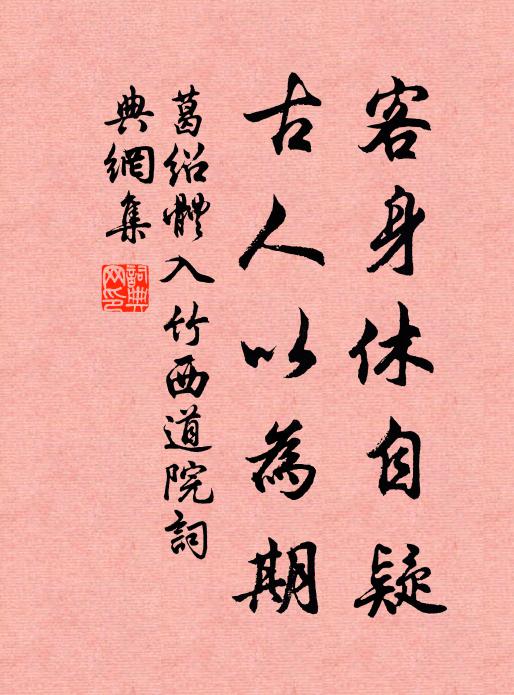 客身休自疑
古人以為期
葛紹體入竹西道院詞
典網集
詞典網印